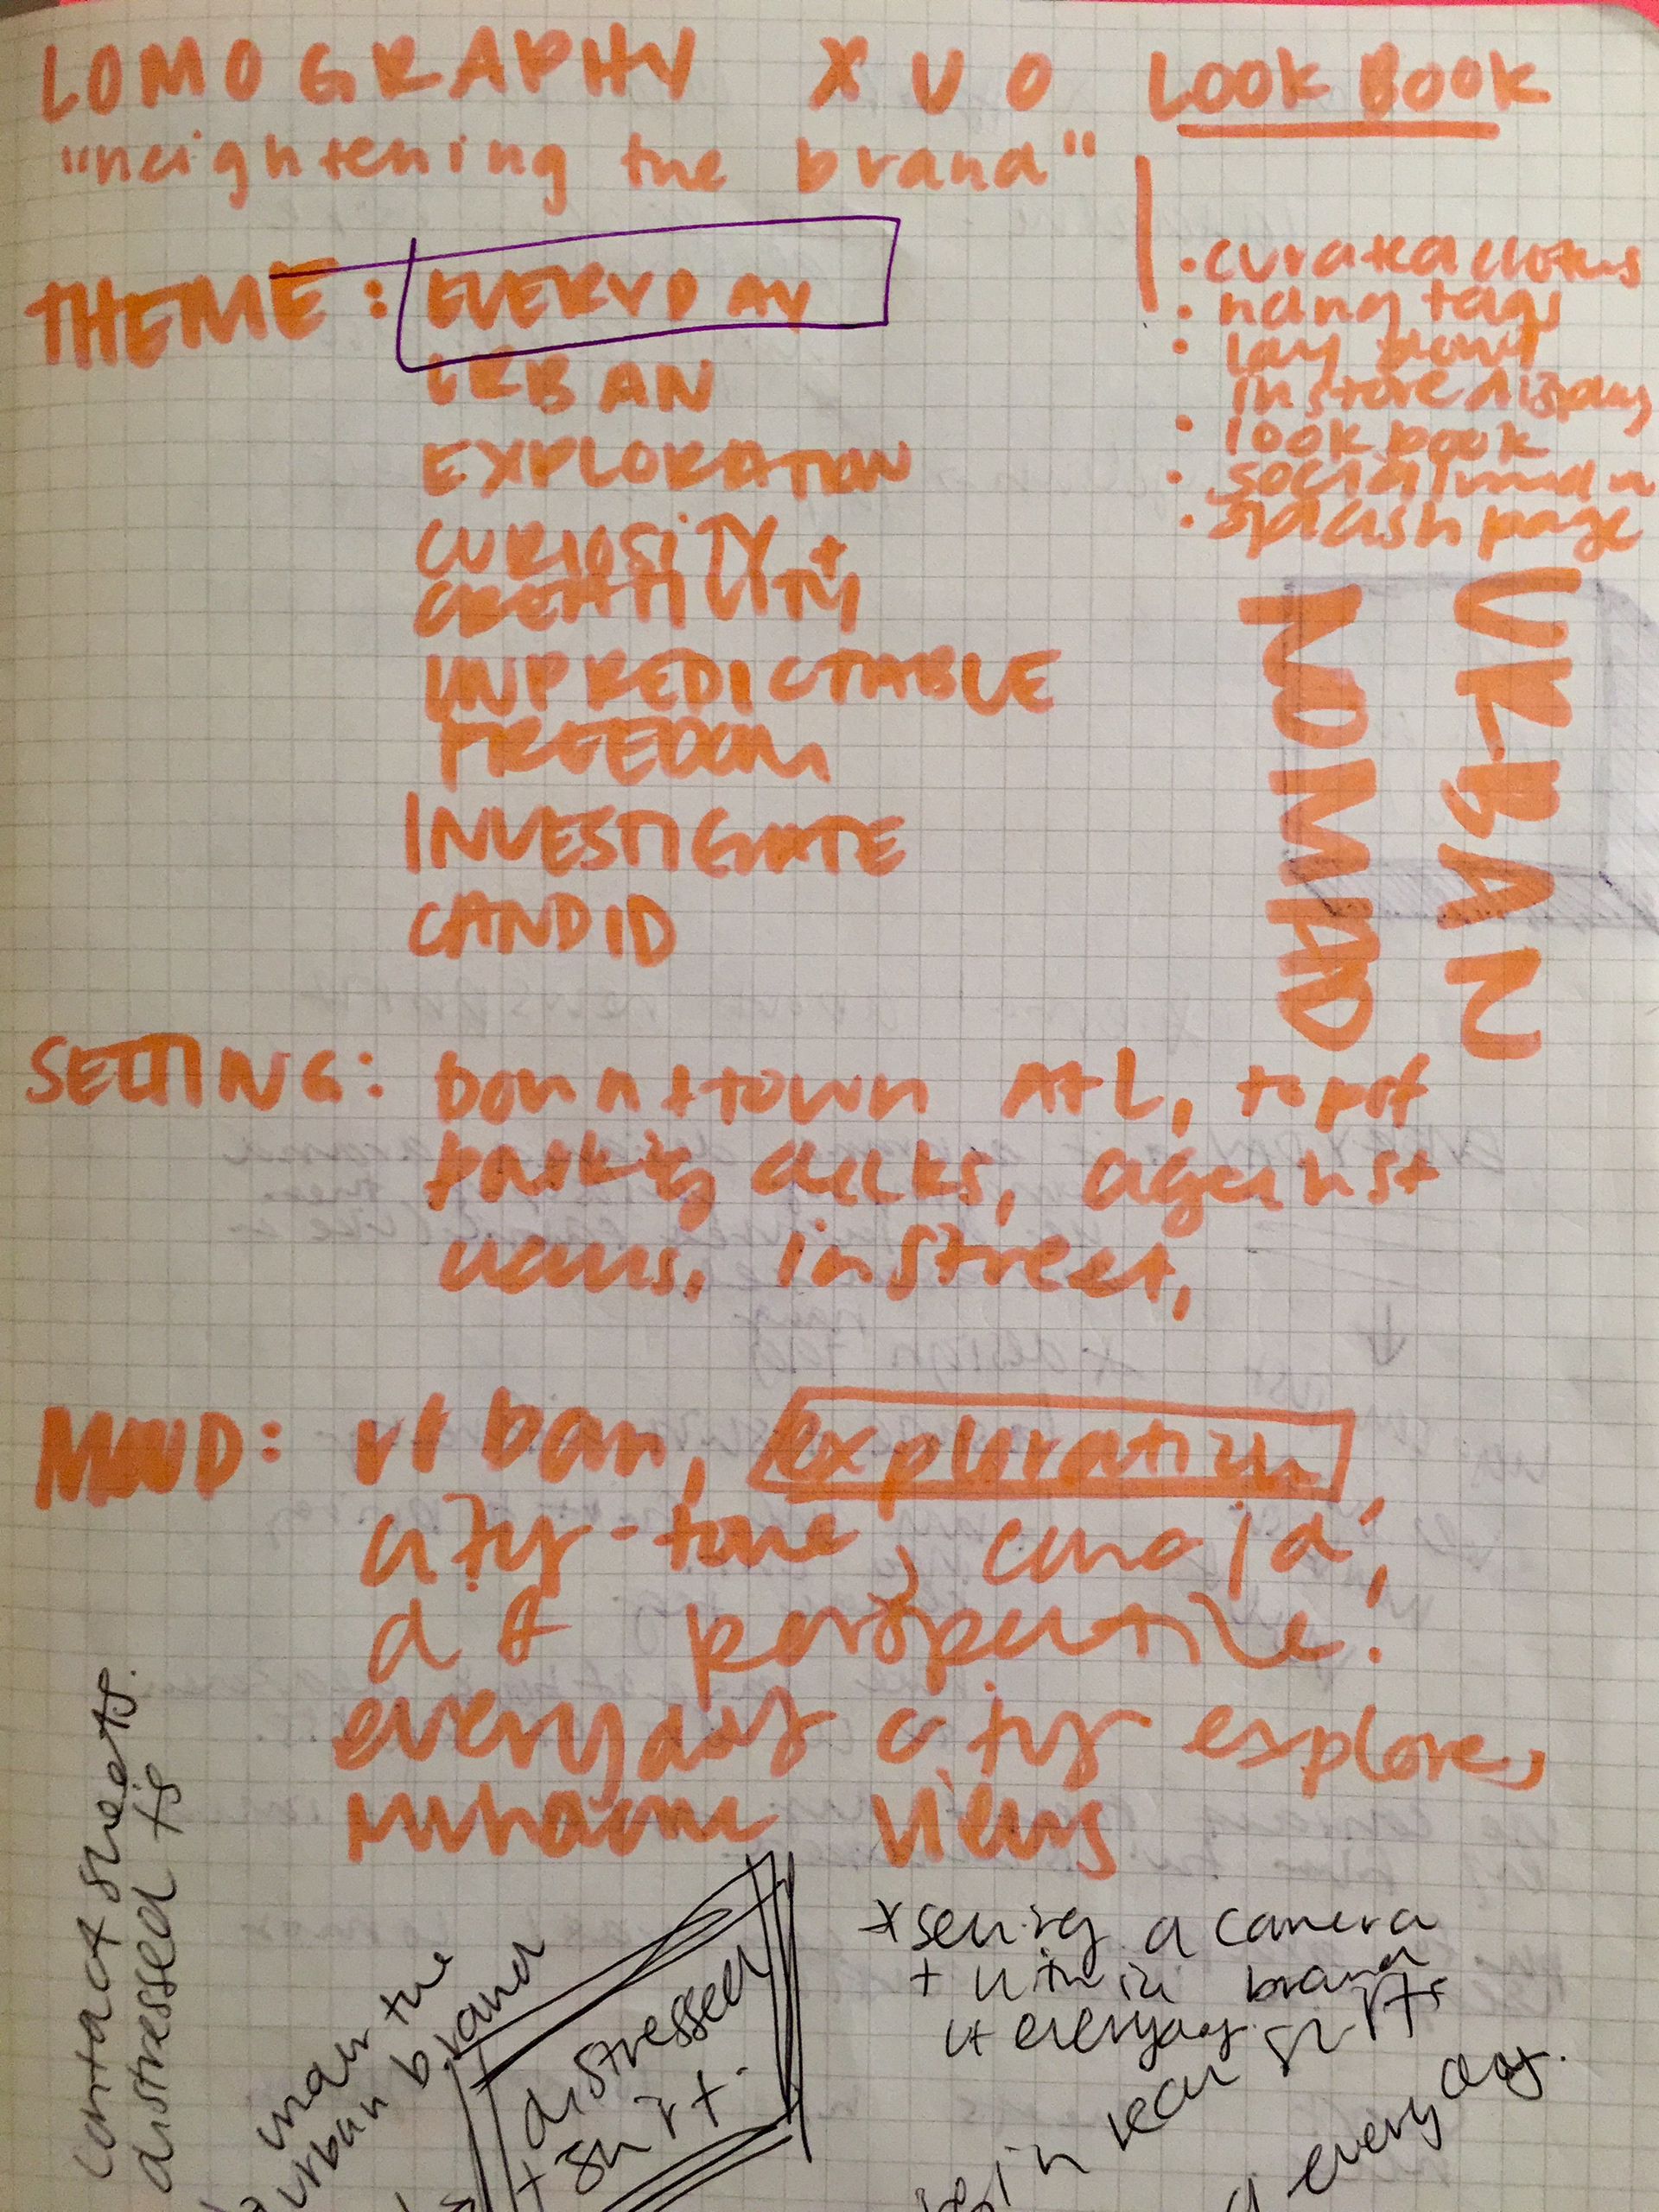 LOMOGRAPHY X UO LOOK BOOK
"heightening the brand"
• curated clothes
• hang tags
• lay down
in store display
• look book
• social media
• splash page
THEME: EVERYDAY
URBAN
EXPLORATION
CURIOSITY +
CREATIVITY
UNPREDICTABLE
FREEDOM
INVESTIGATE
CANDID
URBAN
NOMAD
SETTING: Downttown ATL, top of
parking decks, against
walls, in street,
MOOD: urban, exploration
city-tone, candid,
dif perspective.
everyday city explore,
views
contact sheets.
distressed ts
under the
urban brand
distressed
+ shirt.
* seeing a camera
+ within brand
everyday.
in
everyday.